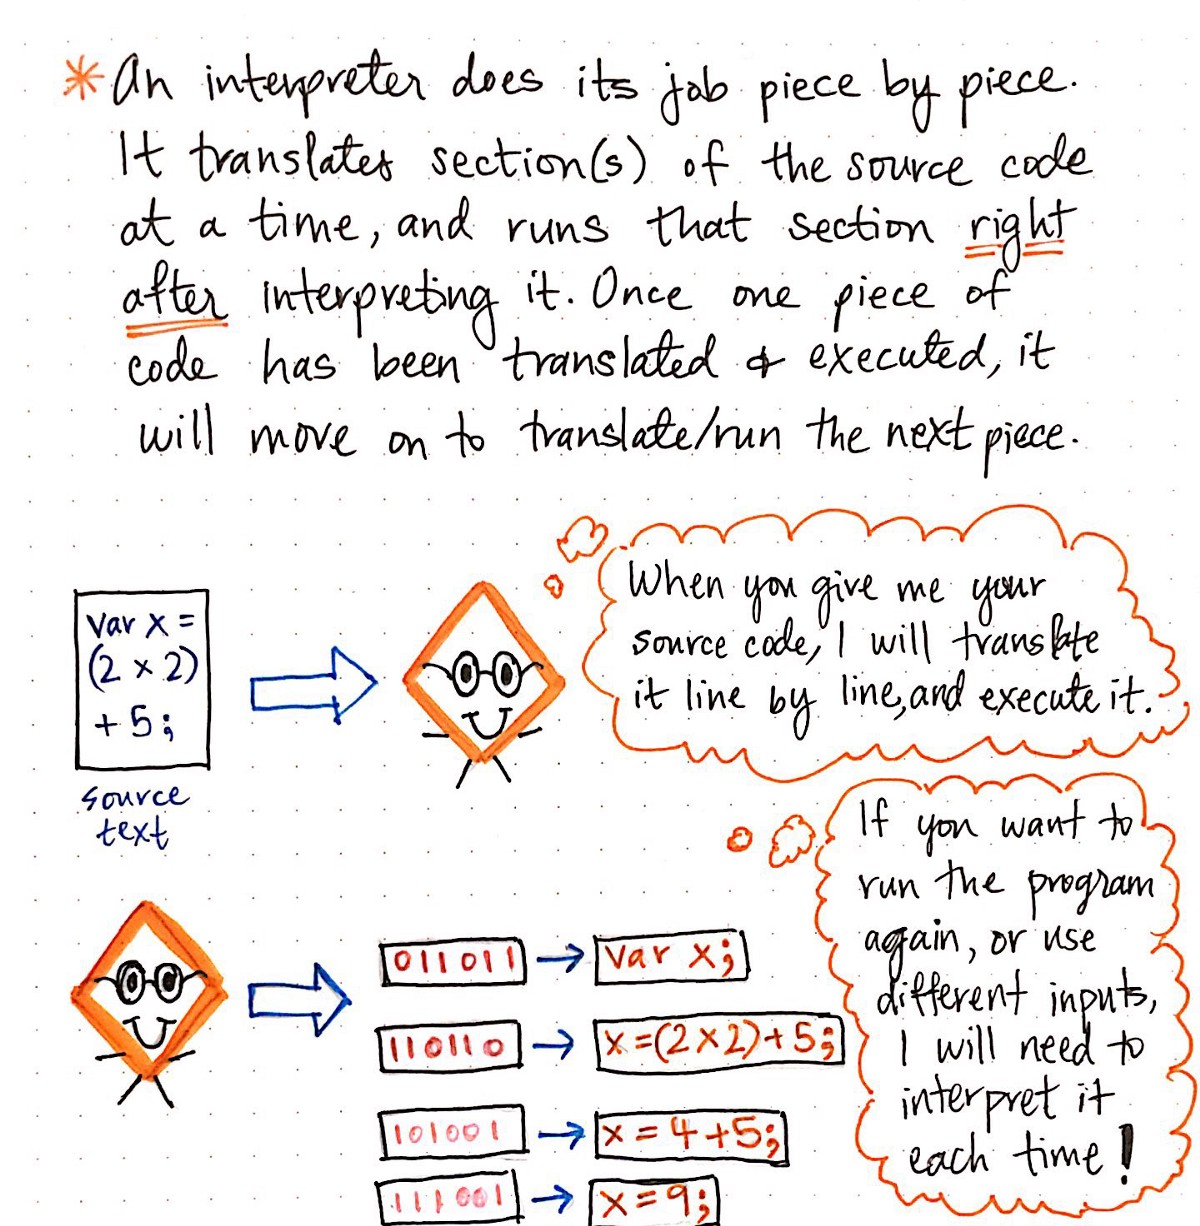 * An interpreter does its job piece by piece.
It translates section(s) of the source code
at a time, and runs that section right
after interpreting it. Once one piece of
code has been translated & executed, it
will move on to translate/run the next piece.
When you give me your
source code, I will translate
it line by line, and execute it.
var x =
(2 x 2)
+ 5;
source
text
If you want to
run the program
again, or use
different inputs,
I will need to
interpret it
each time!
011011 → var x;
110110 → x=(2x2)+5;
101001 → x = 4+5;
111001 → x=9;